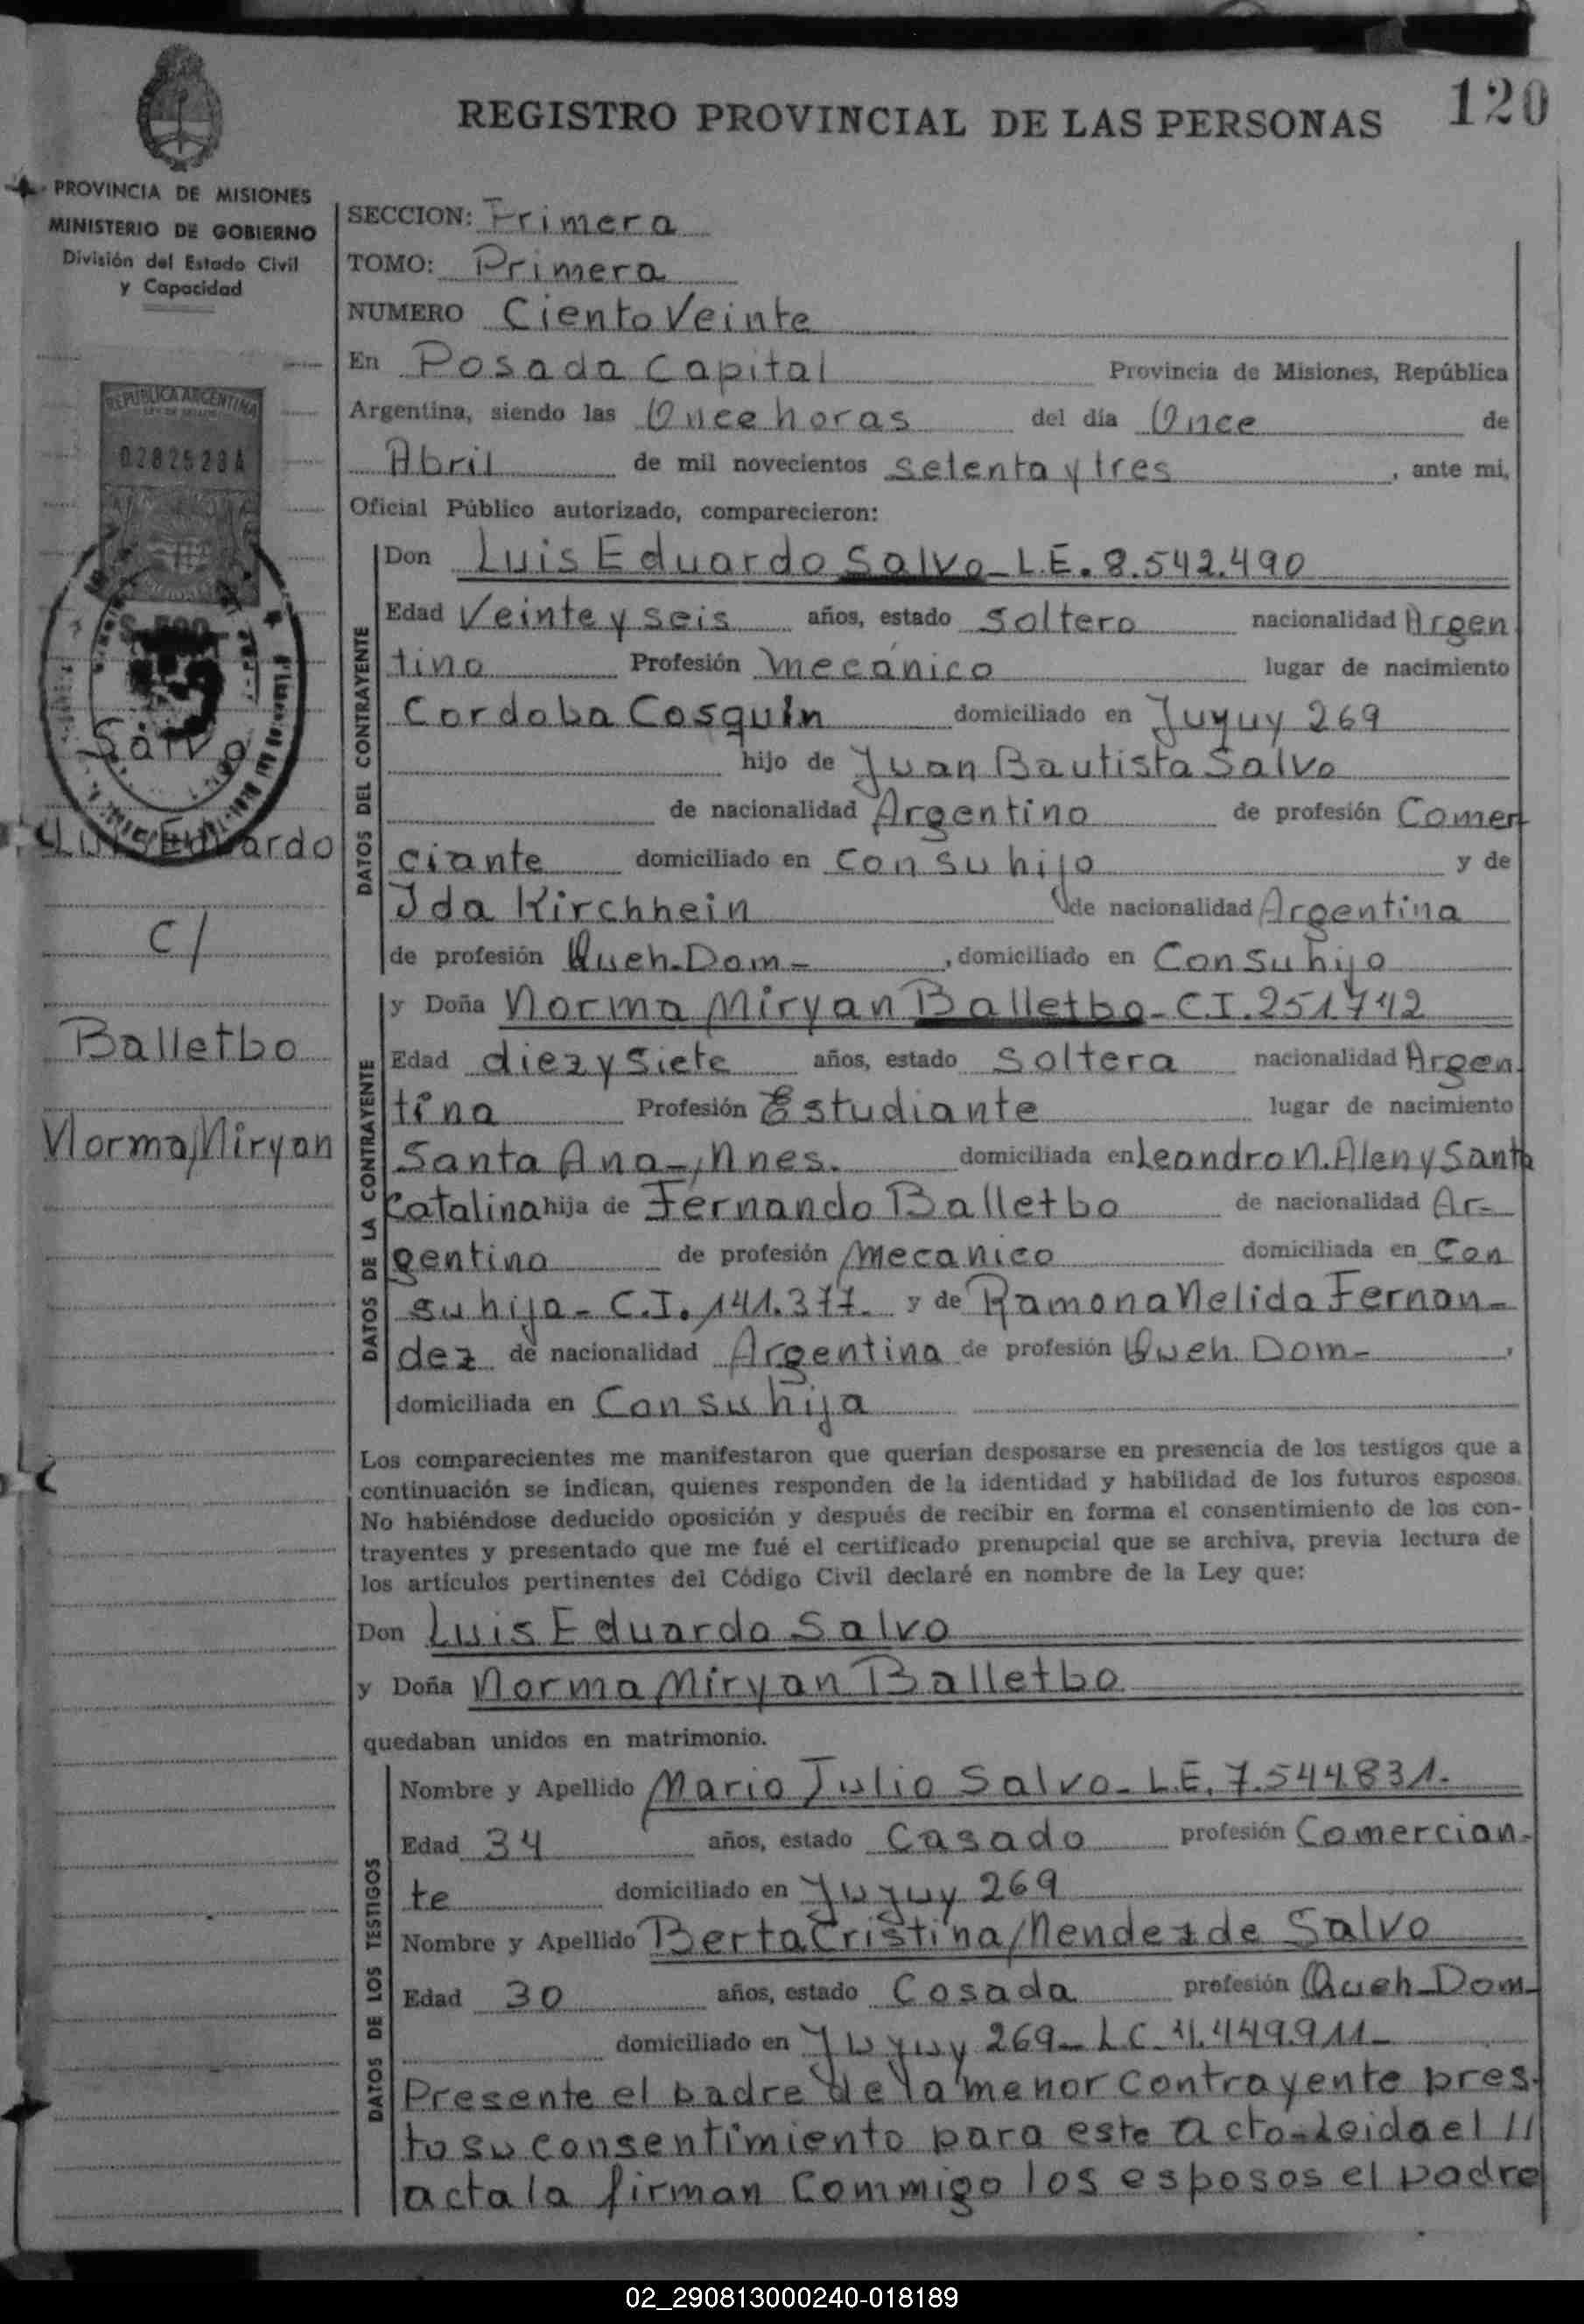 REGISTRO PROVINCIAL DE LAS PERSONAS 120
PROVINCIA DE MISIONES
MINISTERIO DE GOBIERNO
División del Estado Civil
y Capacidad
REPUBLICA ARGENTINA
Salvo
Luis Eduardo
C/
Balletbo
Norma Miryan
SECCION: Primera
TOMO: Primera
NUMERO Ciento Veinte
En Posada Capital Provincia de Misiones, República
Argentina, siendo las Once horas del día Once de
Abril de mil novecientos setenta y tres, ante mi,
Oficial Público autorizado, comparecieron:
DATOS DEL CONTRAYENTE
Don Luis Eduardo Salvo - L.E. 8.542.490
Edad Veinte y seis años, estado Soltero nacionalidad Argen
tino Profesión Mecánico lugar de nacimiento
Cordoba Cosquin domiciliado en Jujuy 269
hijo de Juan Bautista Salvo
de nacionalidad Argentino de profesión Comer
ciante domiciliado en Con su hijo y de
Ida Kirchhein de nacionalidad Argentina
de profesión Queh. Dom-, domiciliado en Con su hijo
DATOS DE LA CONTRAYENTE
y Doña Norma Miryan Balletbo - C.I. 251742
Edad diez y siete años, estado Soltera nacionalidad Argen
tina Profesión Estudiante lugar de nacimiento
Santa Ana -, Mnes. domiciliada en Leandro N. Alen y Santa
Catalina hija de Fernando Balletbo de nacionalidad Ar-
gentino de profesión Mecanico domiciliada en Con
su hija - C.I. 141.377. y de Ramona Nelida Fernan-
dez de nacionalidad Argentina de profesión Queh. Dom-,
domiciliada en Con su hija
Los comparecientes me manifestaron que querían desposarse en presencia de los testigos que a
continuación se indican, quienes responden de la identidad y habilidad de los futuros esposos.
No habiéndose deducido oposición y después de recibir en forma el consentimiento de los con-
trayentes y presentado que me fué el certificado prenupcial que se archiva, previa lectura de
los artículos pertinentes del Código Civil declaré en nombre de la Ley que:
Don Luis Eduardo Salvo
y Doña Norma Miryan Balletbo
quedaban unidos en matrimonio.
DATOS DE LOS TESTIGOS
Nombre y Apellido Mario Julio Salvo - L.E. 7.544.831.
Edad 34 años, estado Casado profesión Comercian-
te domiciliado en Jujuy 269
Nombre y Apellido Berta Cristina Mendez de Salvo
Edad 30 años, estado Casada profesión Queh. Dom-
domiciliado en Jujuy 269 - L.C. 4.449.911-
Presente el padre de la menor contrayente pres-
to su consentimiento para este acto - Leida el //
acta la firman Commigo los esposos el padre
02_290813000240-018189